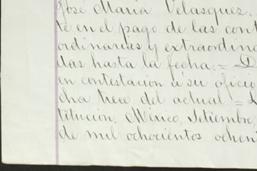 José María Velasquez,
te en el pago de las cont
ordinarias y extraordina
das hasta la fecha.= D
en contestacion á su oficio
cha trece del actual=L
titucion, México, Setiembre,
de mil ochocientos ochen